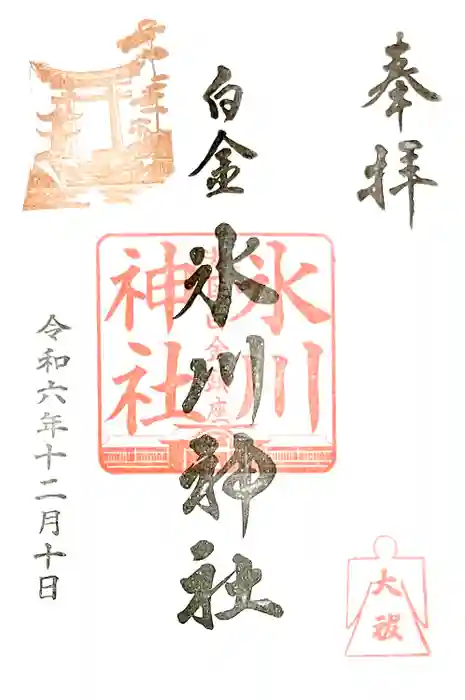 奉拝
白金
氷川神社
氷川
神社
令和六年十二月十日
大祓